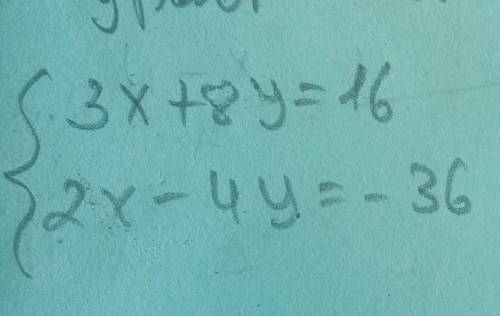 3x+8y=16
2x-4y=-36